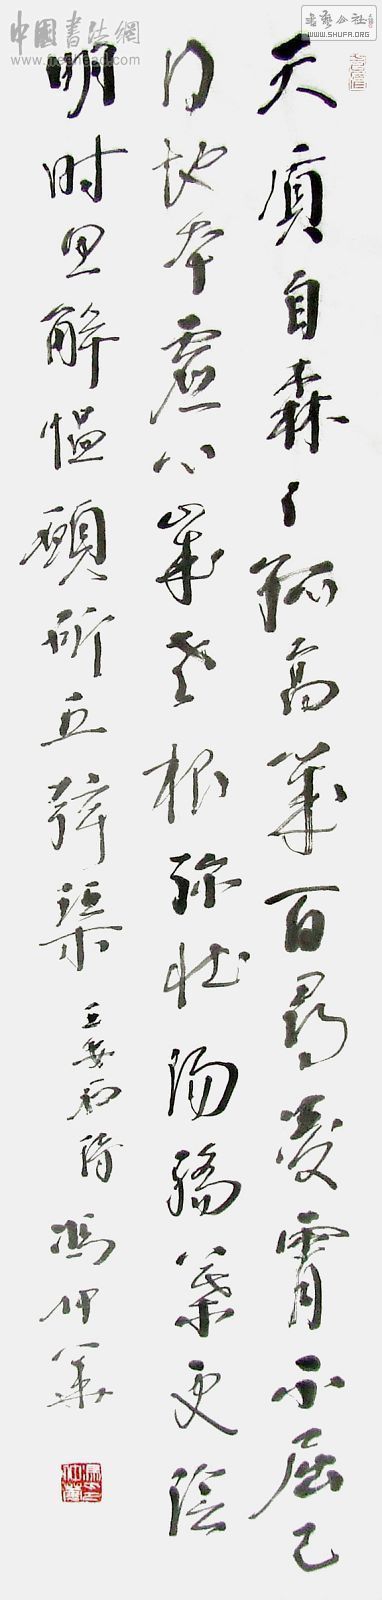 中國書法網
www.freehead.com
書藝公社
WWW.SHUFA.ORG
天質自森々孤高幾百尋凌霄不屈己
得地本虛心歲老根弥壯陽驕葉更陰
明时思解愠願斫五弦琴 王安石詩 馮仲華